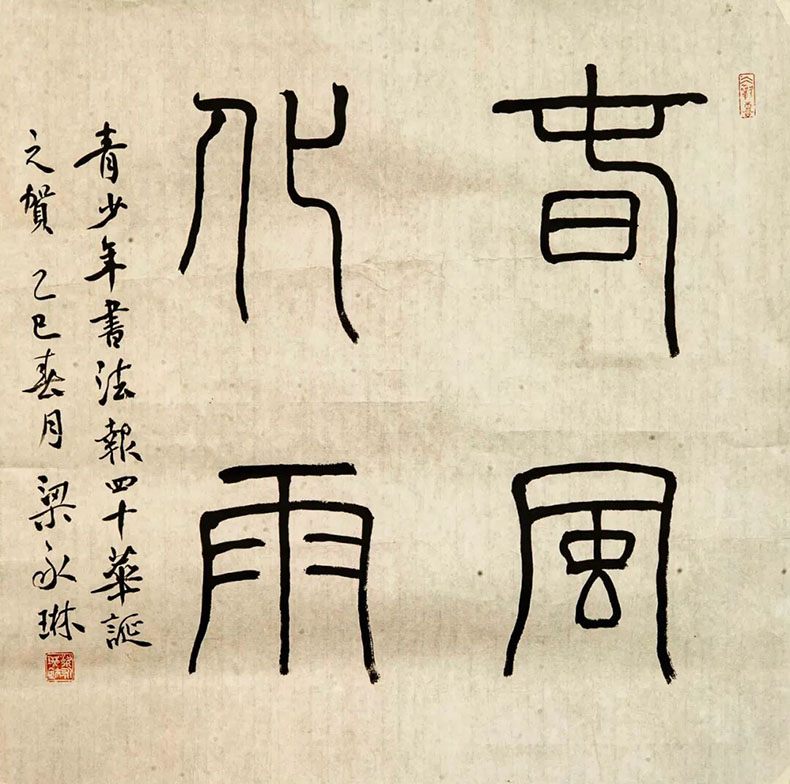 春風
化雨
青少年書法報四十華誕
之賀 乙巳春月 梁永琳